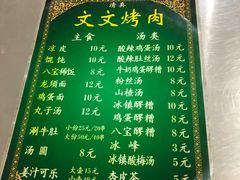 清真
文文烤肉
主食 汤类
凉皮 10元 酸辣鸡蛋汤 10元
馄饨 10元 酸辣肚丝汤 12元
八宝稀饭 8元 牛奶鸡蛋醪糟 10元
龙须面 12元 粉丝汤 8元
鸡蛋面 10元 山楂汤 8元
丸子汤 12元 冰镇醪糟 10元
涮牛肚 小份25元/20串 鸡蛋醪糟 8元
大份50元/40串 八宝醪糟 8元
汤圆 8元 冰峰 3元
姜汁可乐 大壶15元 冰镇酸梅汤 5元
杏皮茶